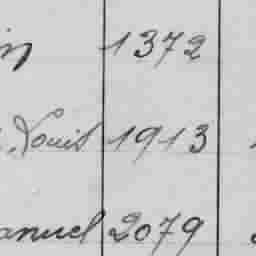 in 1372
Louis 1913
anuel 2079